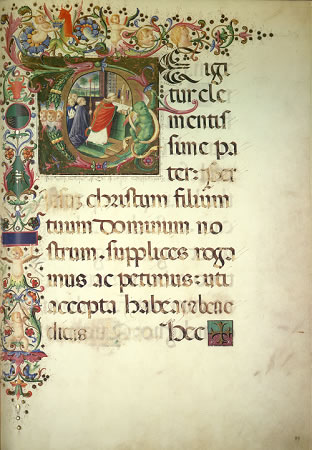 TE igi
tur cle
mentis
sime pa
ter:
christum filium
tuum dominum no
strum. supplices roga
mus ac petimus: uti
accepta habeas & bene
dicas Hec ✠